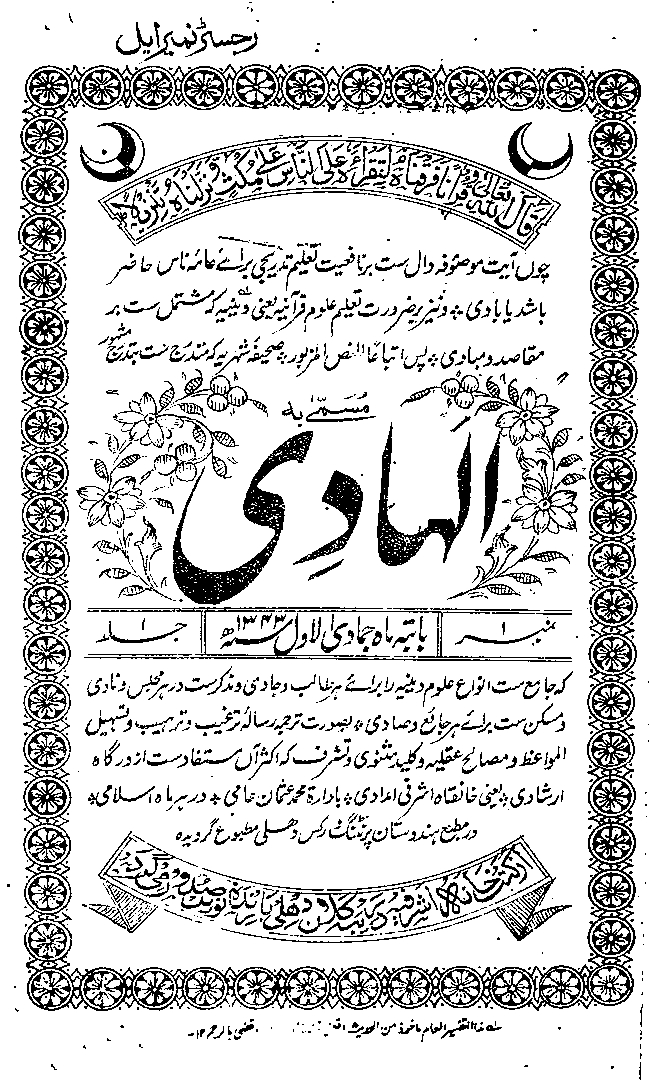 رجسٹر نمبر ایل
قال اللہ تعالیٰ وقرآنا فرقناہ لتقراہ علی الناس علی مکث ونزلناہ تنزیلا
چوں آیت موصوفہ دال ست بر نافعیت تعلیم تدریجی برائے عامہ ناس حاضر
باشد یا بادی ٭ ونیز بر ضرورت تعلیم علوم قرآنیہ یعنی دینیہ کہ مشتمل ست بر
مقاصد و مبادی ٭ پس اتباعا للنص المزبور ٭ صحیفہ شہریہ کہ مندرج ست بتدرج مشہور
مسمّٰے بہ
الہادی
نمبر ۱
بابتہ ماہ جمادی الاول سنہ ۱۳۴۳ھ
جلد ۱
کہ جامع ست انواع علوم دینیہ را برائے ہر طالب و جادی و مذکر ست در ہر مجلس و نادی
و مسکن ست برائے ہر جائع و صادی ٭ بصورت ترجمہ رسالہ ترغیب و ترہیب و تسہیل
المواعظ و مصالح عقلیہ و کلید مثنوی و تشرف کہ اکثر آں مستفاد ست از درگاہ
ارشادی ٭ یعنی خانقاہ اشرفی امدادی ٭ بادارۃ محمد عثمان عامی ٭ در ہر ماہ اسلامی ٭
در مطبع ہندوستان پرنٹنگ ورکس دہلی مطبوع گردیدہ
از کتبخانہ اشرفیہ دریبہ کلاں دہلی
ھذا التفسیر العام ماخوذ من الحدیث